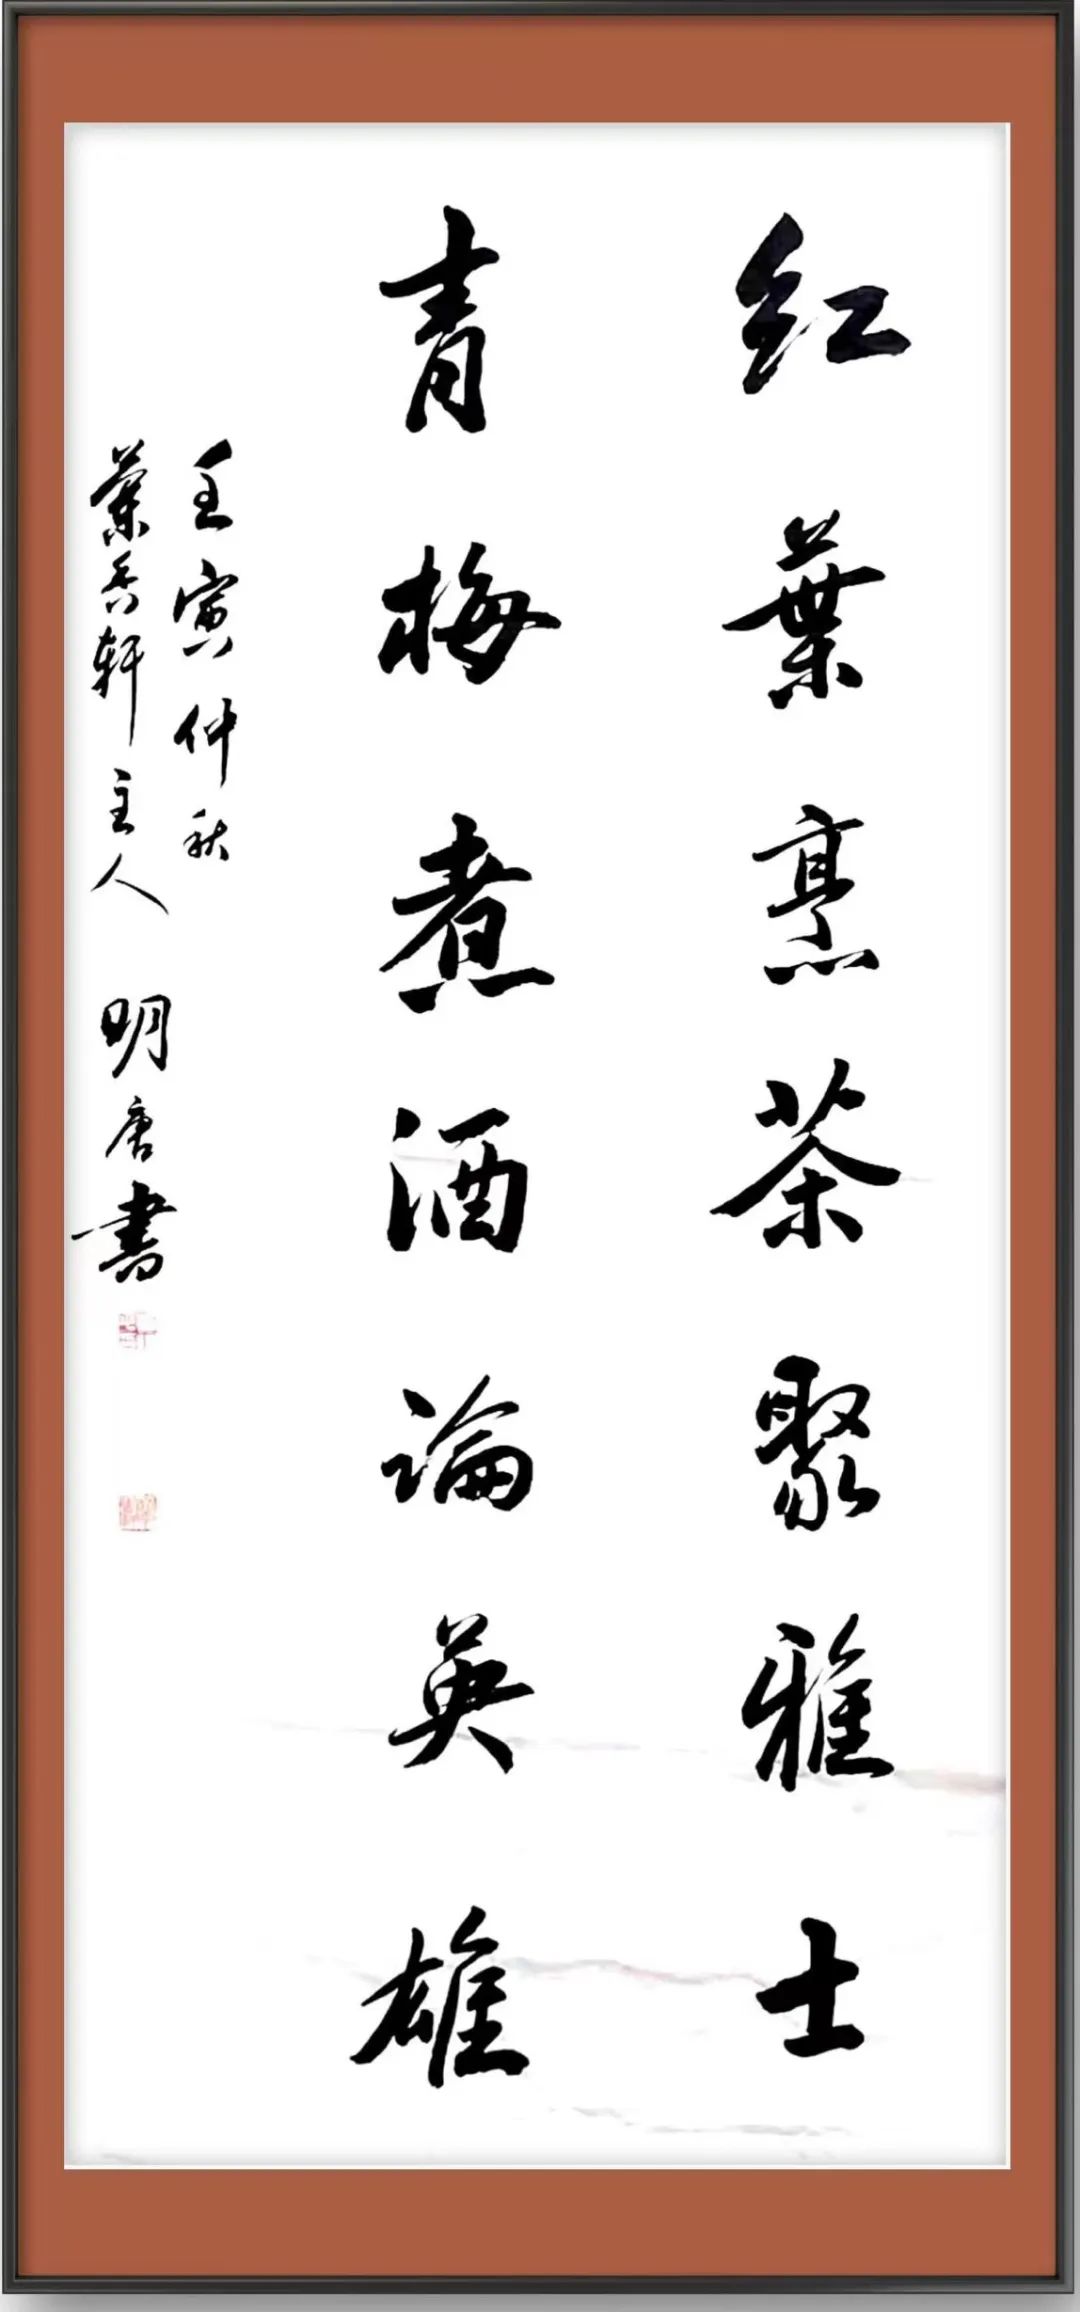 红葉烹茶聚雅士
青梅煮酒論英雄
壬寅仲秋
蘭香軒主人 明唐書